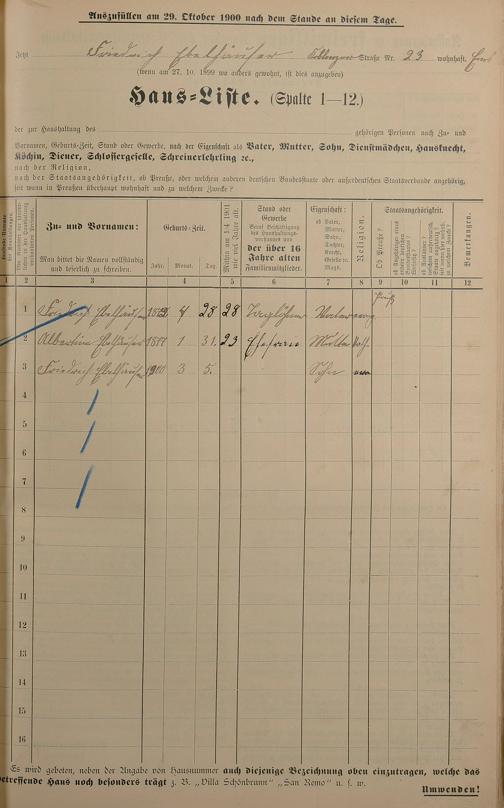 Auszufüllen am 29. Oktober 1900 nach dem Stande an diesem Tage.
Jetzt Friedrich Ebelhäuser Straße Nr. 23 wohnhaft.
(wenn am 27. 10. 1899 wo anders gewohnt, ist dies anzugeben)
Haus-Liste. (Spalte 1—12.)
der zur Haushaltung des gehörigen Personen nach Zu- und
Vornamen, Geburts-Zeit, Stand oder Gewerbe, nach der Eigenschaft als Vater, Mutter, Sohn, Dienstmädchen, Hausknecht,
Köchin, Diener, Schlossergeselle, Schreinerlehrling ꝛc.,
nach der Religion,
nach der Staatsangehörigkeit, ob Preußen oder welchem anderen deutschen Bundesstaate oder außerdeutschen Staatsverbande angehörig,
seit wann in Preußen überhaupt wohnhaft und zu welchem Zwecke?
Zu- und Vornamen:
Man bittet die Namen vollständig und leserlich zu schreiben.
Geburts-Zeit.
Jahr. Monat. Tag.
Mithin am 1/4 1901 wie viel Jahre alt.
Stand oder Gewerbe
der über 16 Jahre alten Familienmitglieder.
Eigenschaft:
ob Vater, Mutter, Sohn, Tochter, Knecht, Geselle oder Magd.
Religion.
Staatsangehörigkeit.
Ob Preuße?
Bemerkungen.
1 2 3 4 5 6 7 8 9 10 11 12
1 Friedrich Ebelhäuser 1872 4 28 28 Taglöhner Vater evang
2 Ebelhäuser 1877 1 31. 23 Ehefrau Mutter kath.
3 Friedrich Ebelhäuser 1900 3 5. Sohn
4
5
6
7
8
9
10
11
12
13
14
15
16
Es wird gebeten, neben der Angabe von Hausnummer auch diejenige Bezeichnung oben einzutragen, welche das
betreffende Haus noch besonders trägt z. B. „Villa Schönbrunn" „San Remo" u. s. w.
Umwenden!